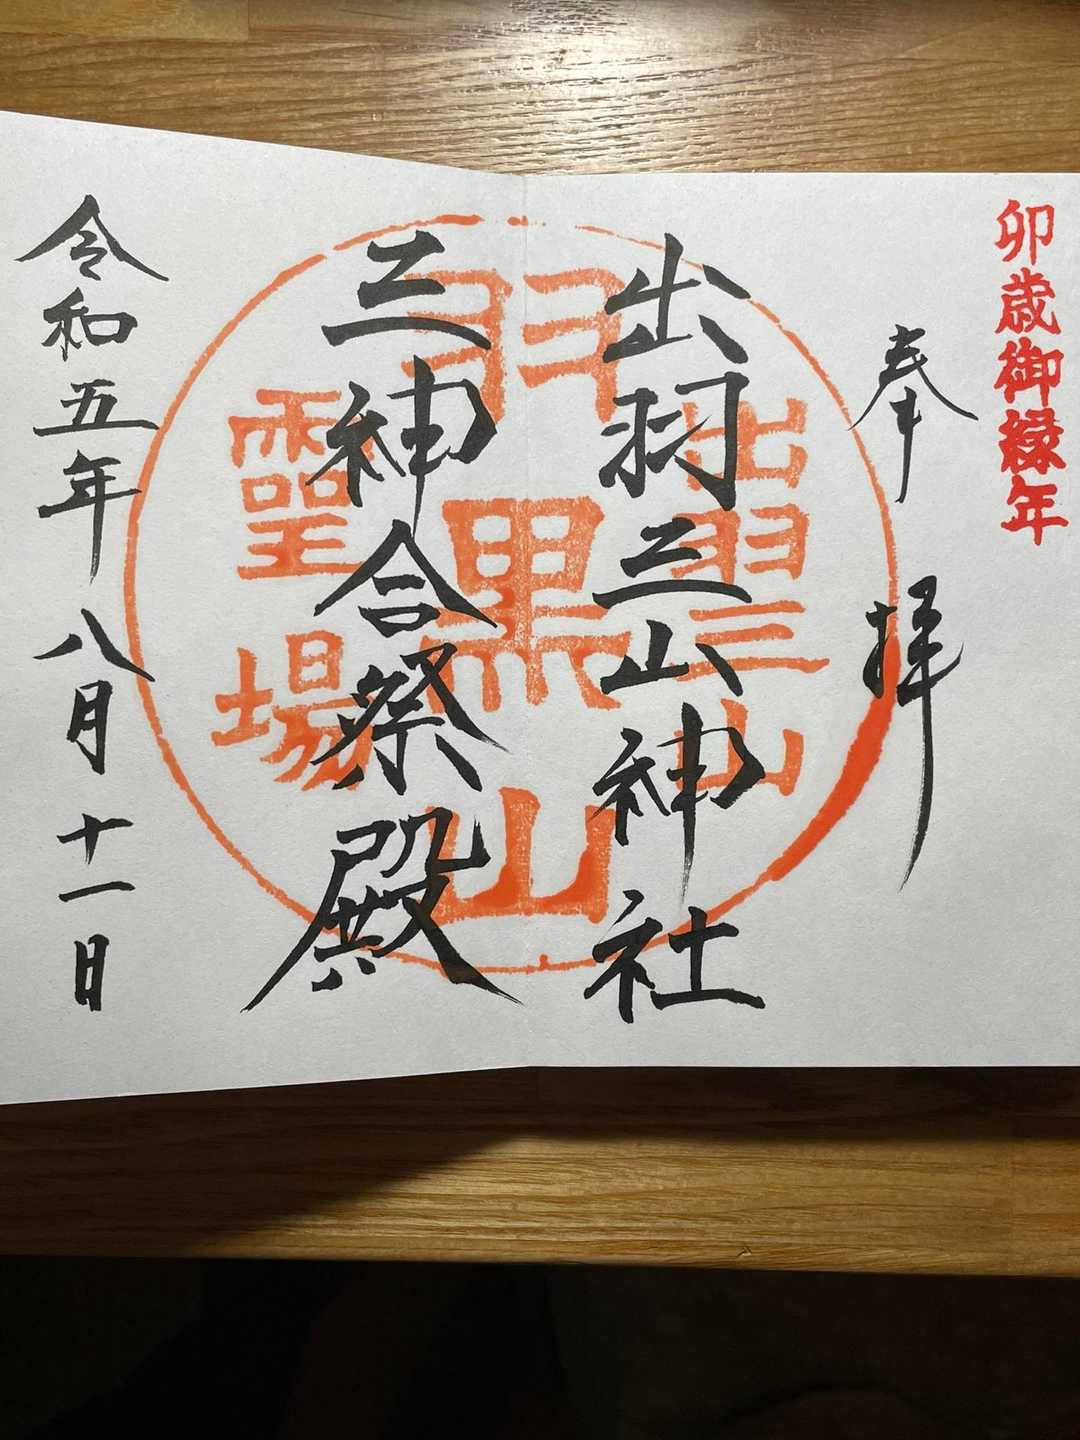 卯歳御縁年
奉拝
出羽三山神社
三神合祭殿
令和五年八月十一日
出羽三山
羽黒山
霊場